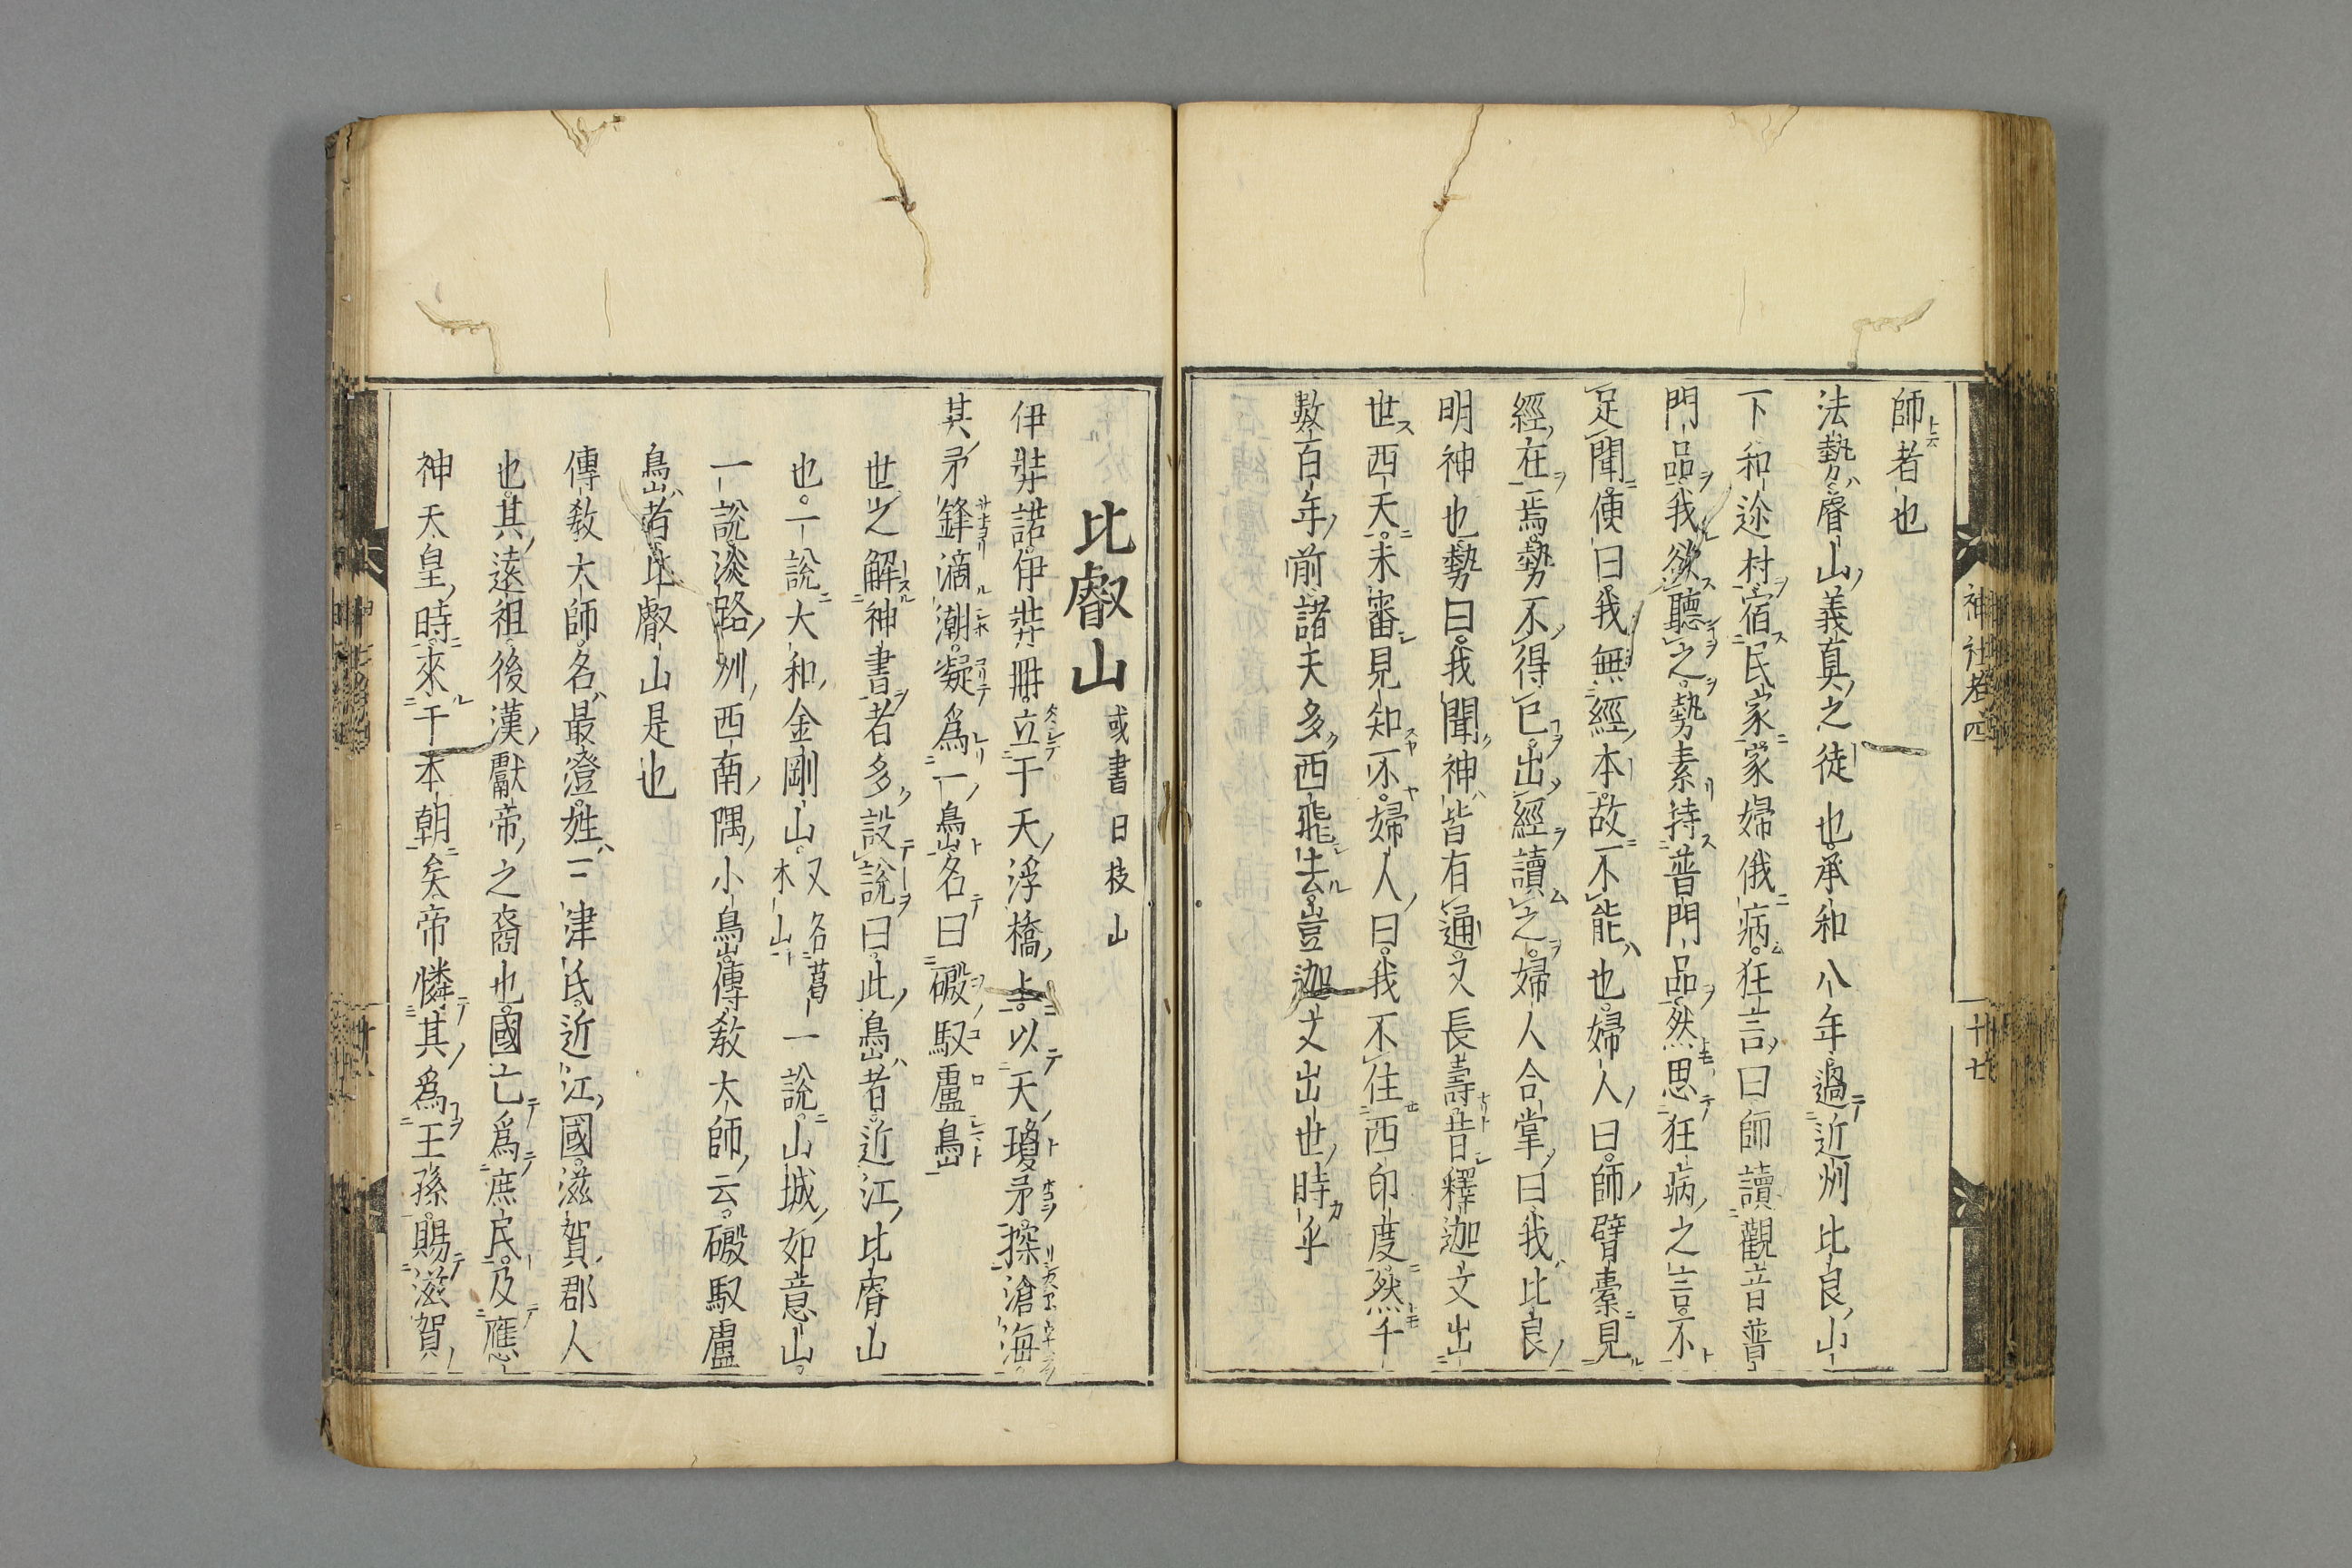 師者也
法勢睿山義真之徒也承和八年過近州比良山
下和邇村宿民家家婦俄病狂言曰師讀觀音普
門品我欲聽之勢素持普門品然思狂病之言不
足聞便曰我無經本故不能也婦人曰師臂橐見
經在焉勢不得已出經讀之婦人合掌曰我比良
明神也勢曰我聞神皆有通又長壽昔釋迦文出
世西天未審見知不婦人曰我不住西印度然千
數百年前諸天多西飛去豈迦文出世時乎
神社考四
廿七
比叡山 或書日枝山
伊弉諾伊弉冊立于天浮橋上以天瓊矛探滄海
其矛鋒滴潮凝為一嶋名曰磤馭盧嶋
世之解神書者多設說曰此嶋者近江比睿山
也一說大和金剛山又名葛木山一說山城如意山
一說淡路洲西南隅小嶋傳教大師云磤馭盧
嶋者比叡山是也
傳教大師名最澄姓三津氏近江國滋賀郡人
也其遠祖後漢獻帝之裔也國亡為庶民及應
神天皇時來于本朝矣帝憐其為王孫賜滋賀